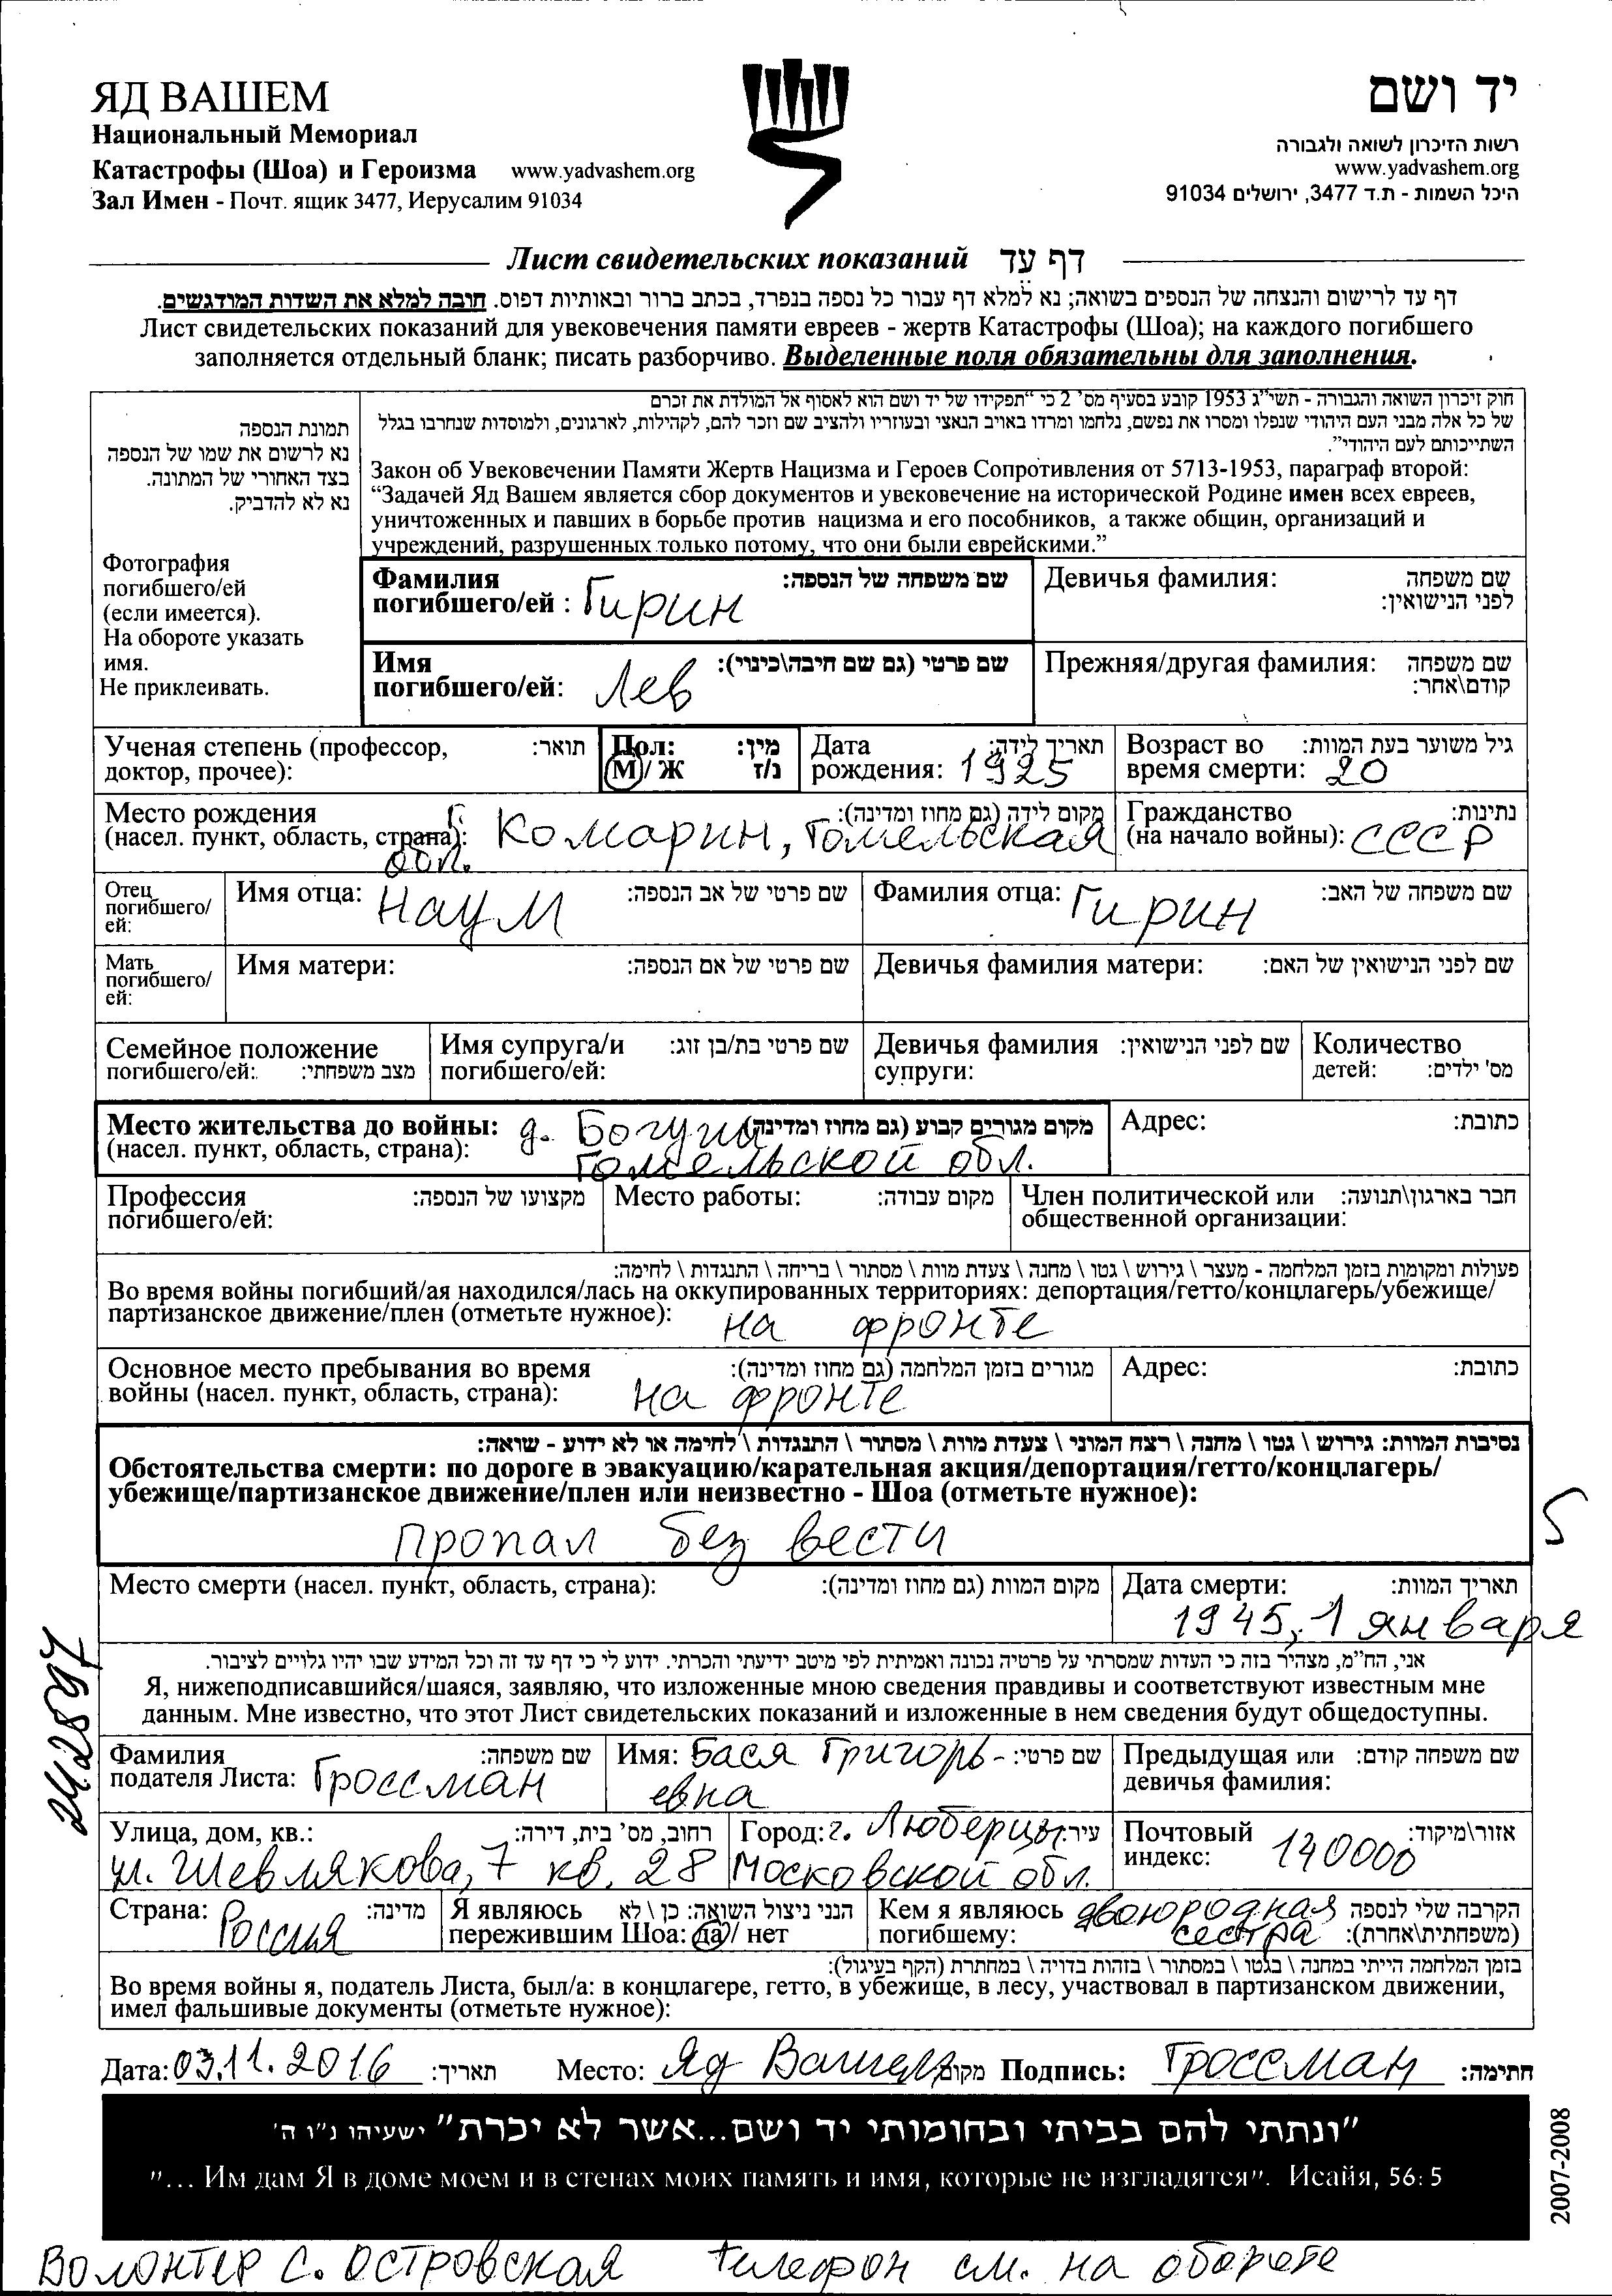 ЯД ВАШЕМ
Национальный Мемориал
Катастрофы (Шоа) и Героизма www.yadvashem.org
Зал Имен - Почт. ящик 3477, Иерусалим 91034
יד ושם
רשות הזיכרון לשואה ולגבורה
www.yadvashem.org
היכל השמות - ת.ד 3477, ירושלים 91034
Лист свидетельских показаний דף עד
דף עד לרישום והנצחה של הנספים בשואה; נא למלא דף עבור כל נספה בנפרד, בכתב ברור ובאותיות דפוס. חובה למלא את השדות המודגשים.
Лист свидетельских показаний для увековечения памяти евреев - жертв Катастрофы (Шоа); на каждого погибшего
заполняется отдельный бланк; писать разборчиво. Выделенные поля обязательны для заполнения.
תמונת הנספה
נא לרשום את שמו של הנספה
בצד האחורי של התמונה.
נא לא להדביק.
Фотография
погибшего/ей
(если имеется).
На обороте указать
имя.
Не приклеивать.
חוק זיכרון השואה והגבורה - תשי"ג 1953 קובע בסעיף מס' 2 כי "תפקידו של יד ושם הוא לאסוף אל המולדת את זכרם
של כל אלה מבני העם היהודי שנפלו ומסרו את נפשם, נלחמו ומרדו באויב הנאצי ובעוזריו ולהציב שם וזכר להם, לקהילות, לארגונים, ולמוסדות שנחרבו בגלל
השתייכותם לעם היהודי".
Закон об Увековечении Памяти Жертв Нацизма и Героев Сопротивления от 5713-1953, параграф второй:
“Задачей Яд Вашем является сбор документов и увековечение на исторической Родине имен всех евреев,
уничтоженных и павших в борьбе против нацизма и его пособников, а также общин, организаций и
учреждений, разрушенных только потому, что они были еврейскими.”
Фамилия שם משפחה של הנספה:
погибшего/ей : Гирин
Девичья фамилия: שם משפחה
לפני הנישואין:
Имя שם פרטי (גם שם חיבה\כינוי):
погибшего/ей: Лев
Прежняя/другая фамилия: שם משפחה
קודם\אחר:
Ученая степень (профессор, תואר:
доктор, прочее):
Пол: מין:
М/ Ж ז/נ
Дата תאריך לידה:
рождения: 1925
Возраст во גיל משוער בעת המוות:
время смерти: 20
Место рождения מקום לידה (גם מחוז ומדינה):
(насел. пункт, область, страна): г. Комарин, Гомельская
обл.
Гражданство נתינות:
(на начало войны): СССР
Отец
погибшего/
ей:
Имя отца: Наум שם פרטי של אב הנספה:
Фамилия отца: Гирин שם משפחה של האב:
Мать
погибшего/
ей:
Имя матери: שם פרטי של אם הנספה:
Девичья фамилия матери: שם לפני הנישואין של האם:
Семейное положение
погибшего/ей: מצב משפחתי:
Имя супруга/и שם פרטי בת/בן זוג:
погибшего/ей:
Девичья фамилия שם לפני הנישואין:
супруги:
Количество
детей: מס' ילדים:
Место жительства до войны: מקום מגורים קבוע (גם מחוז ומדינה):
(насел. пункт, область, страна): д.
Гомельской обл.
Адрес: כתובת:
Профессия מקצועו של הנספה:
погибшего/ей:
Место работы: מקום עבודה:
Член политической или חבר בארגון\תנועה:
общественной организации:
פעולות ומקומות בזמן המלחמה - מעצר \ גירוש \ גטו \ מחנה \ צעדת מוות \ מסתור \ בריחה \ התנגדות \ לחימה:
Во время войны погибший/ая находился/лась на оккупированных территориях: депортация/гетто/концлагерь/убежище/
партизанское движение/плен (отметьте нужное): на фронте
Основное место пребывания во время מגורים בזמן המלחמה (גם מחוז ומדינה):
войны (насел. пункт, область, страна): на фронте
Адрес: כתובת:
נסיבות המוות: גירוש \ גטו \ מחנה \ רצח המוני \ צעדת מוות \ מסתור \ התנגדות \ לחימה או לא ידוע - שואה:
Обстоятельства смерти: по дороге в эвакуацию/карательная акция/депортация/гетто/концлагерь/
убежище/партизанское движение/плен или неизвестно - Шоа (отметьте нужное):
Пропал без вести
5
Место смерти (насел. пункт, область, страна): מקום המוות (גם מחוז ומדינה):
Дата смерти: תאריך המוות:
1945, 1 января
אני, הח"מ, מצהיר בזה כי העדות שמסרתי על פרטיה נכונה ואמיתית לפי מיטב ידיעתי והכרתי. ידוע לי כי דף עד זה וכל המידע שבו יהיו גלויים לציבור.
Я, нижеподписавшийся/шаяся, заявляю, что изложенные мною сведения правдивы и соответствуют известным мне
данным. Мне известно, что этот Лист свидетельских показаний и изложенные в нем сведения будут общедоступны.
Фамилия שם משפחה:
подателя Листа: Гроссман
Имя: Бася Григорь- שם פרטי:
евна
Предыдущая или שם משפחה קודם:
девичья фамилия:
Улица, дом, кв.: רחוב, מס' בית, דירה:
ул. Шевлякова, 7 кв. 28
Город: г. Люберцы עיר:
Московской обл.
Почтовый אזור\מיקוד:
индекс: 140000
Страна: Россия מדינה:
Я являюсь הנני ניצול השואה: כן \ לא
пережившим Шоа: да/ нет
Кем я являюсь двоюродная הקרבה שלי לנספה
погибшему: сестра (משפחתית\אחרת):
בזמן המלחמה הייתי במחנה \ בגטו \ במסתור \ בזהות בדויה \ במחתרת (הקף בעיגול):
Во время войны я, податель Листа, был/а: в концлагере, гетто, в убежище, в лесу, участвовал в партизанском движении,
имел фальшивые документы (отметьте нужное):
Дата: 03.11.2016 תאריך: Место: Яд Вашем מקום Подпись: Гроссман חתימה:
"ונתתי להם בביתי ובחומותי יד ושם...אשר לא יכרת" ישעיהו נ"ו ה'
"... Им дам Я в доме моем и в стенах моих память и имя, которые не изгладятся". Исайя, 56:5
2007-2008
Волонтер С. Островская телефон см. на обороте